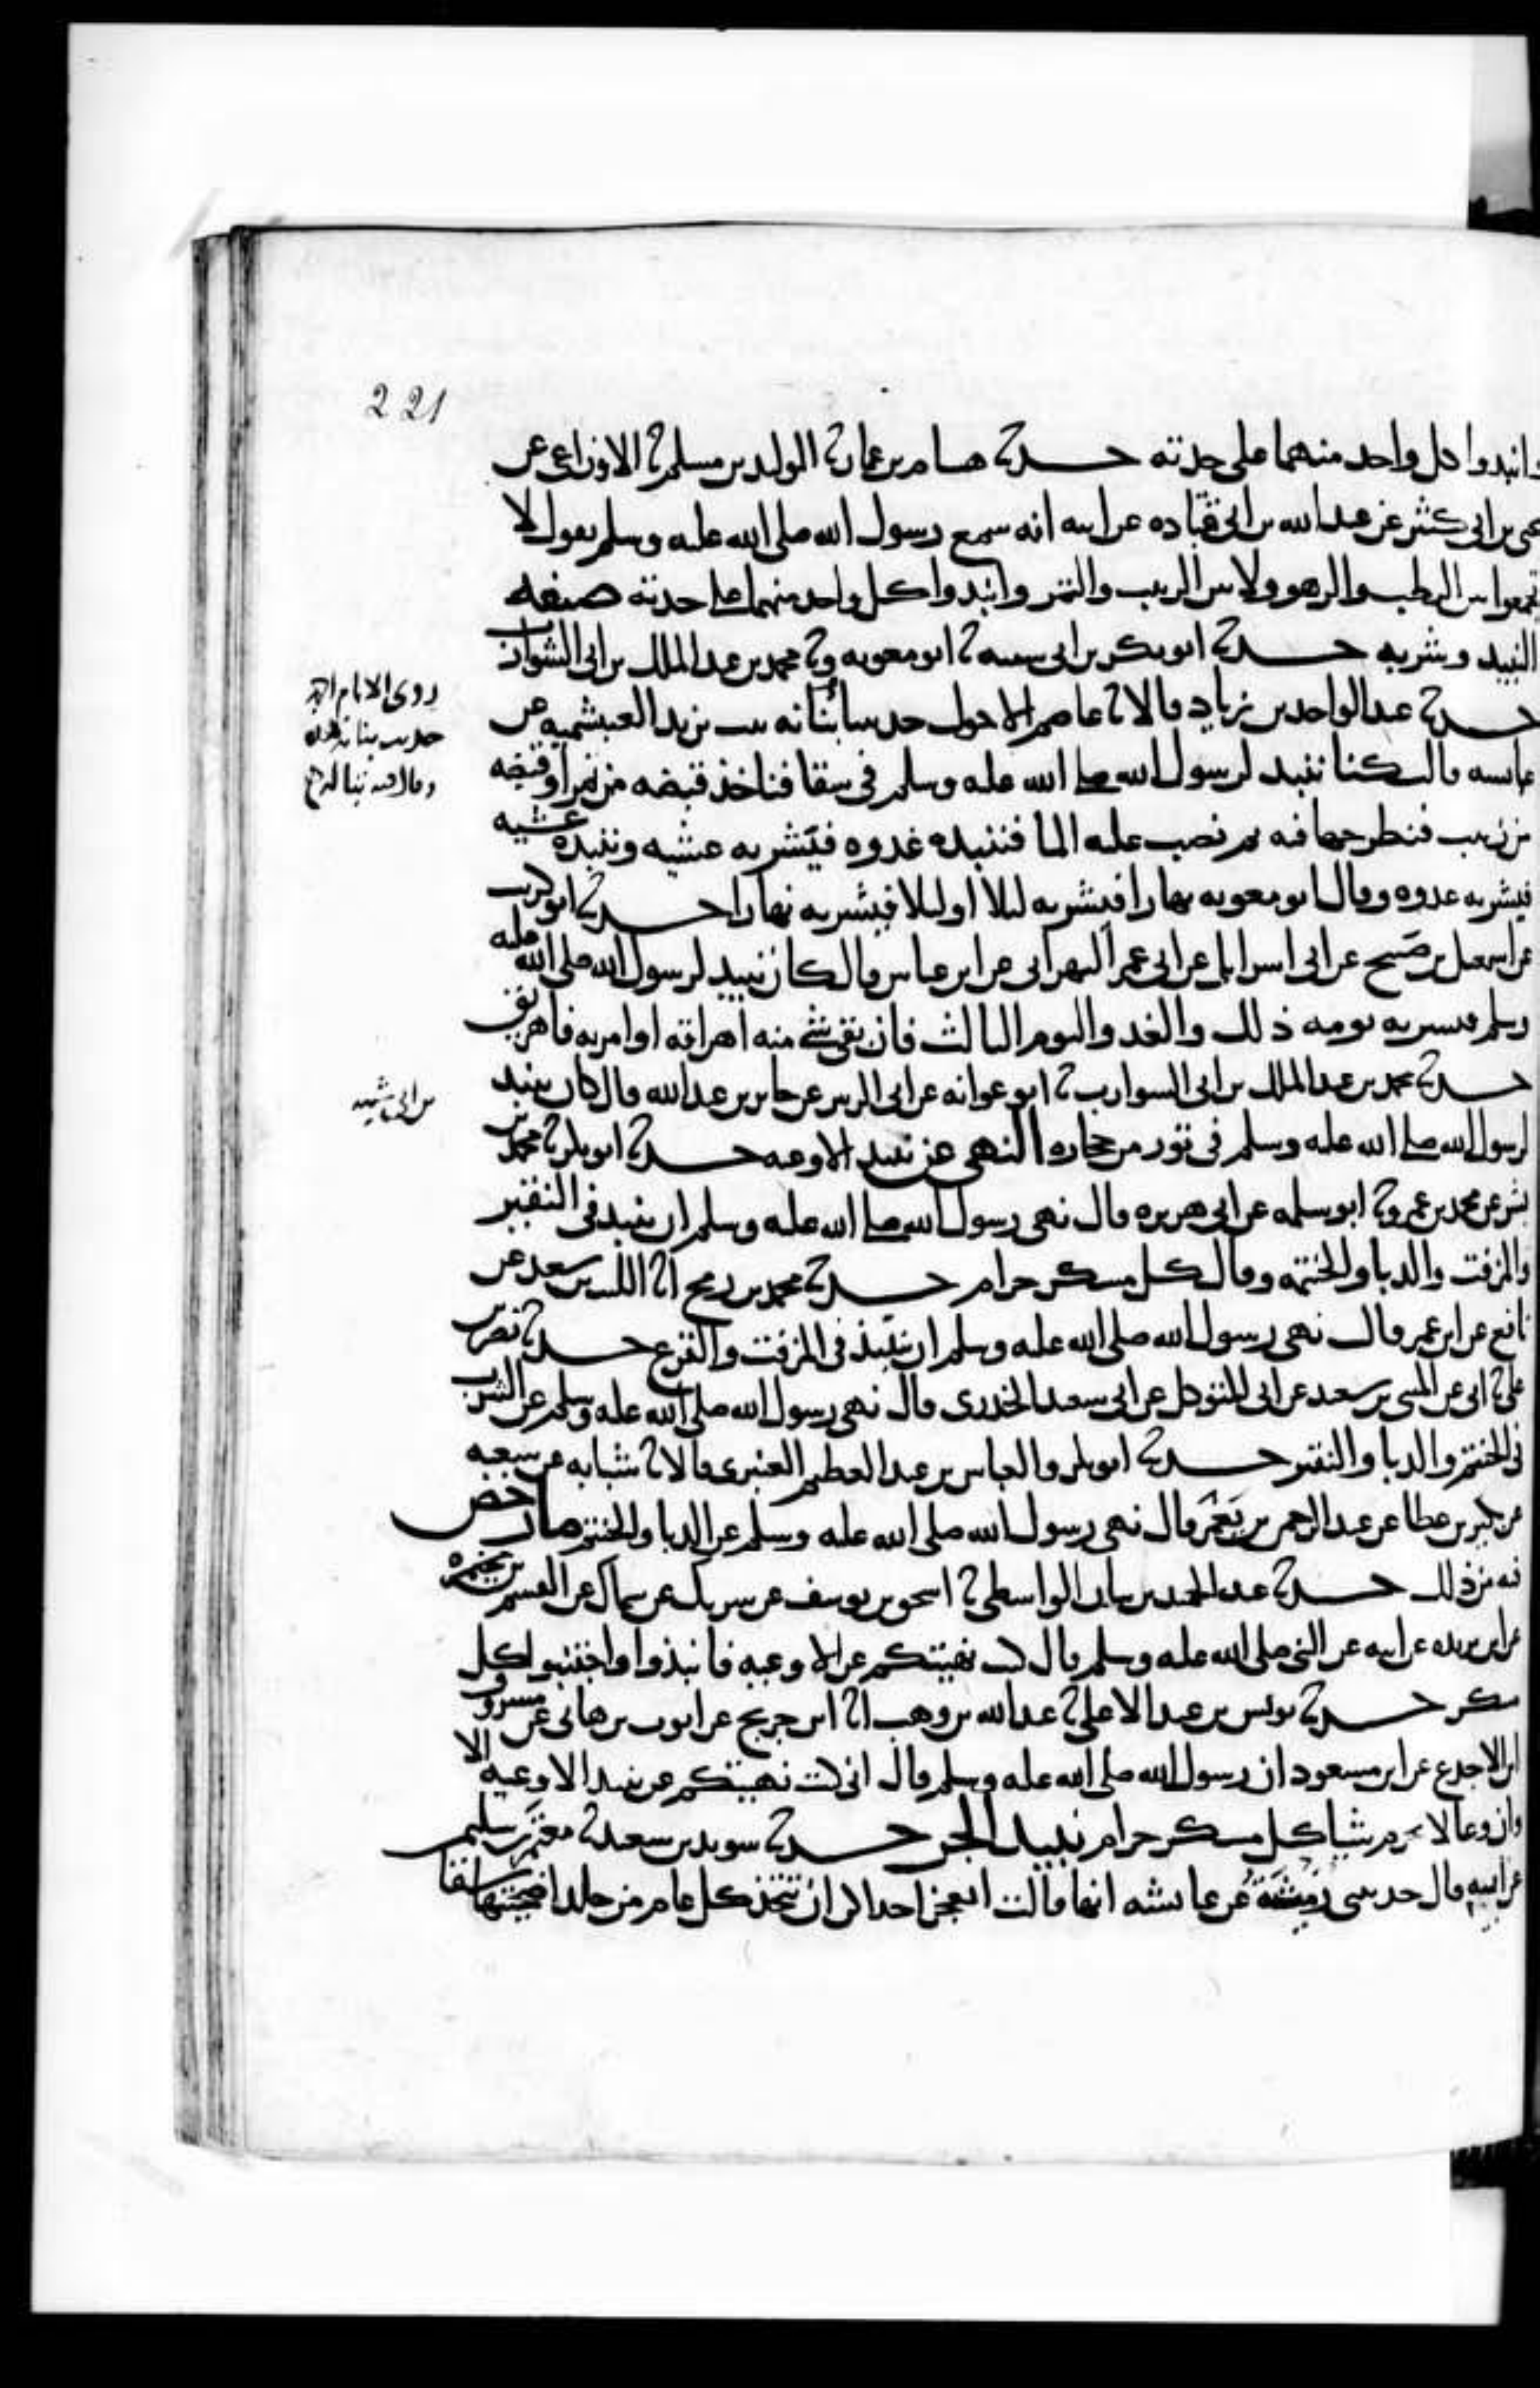 221
وانبذوا كل واحد منهما على حدته حدثنا هشام بن عمار ثنا الوليد بن مسلم ثنا الاوزاعى عن
يحيى بن ابى كثير عن عبد الله بن ابى قتاده عن ابيه انه سمع رسول الله صلى الله عليه وسلم يقول لا
تجمعوا بين الرطب والزهو ولا بين الزبيب والتمر وانبذوا كل واحد منهما على حدته صفه
النبيذ وشربه حدثنا ابو بكر بن ابى شيبه ثنا ابو معويه وثنا محمد بن عبد الملك بن ابى الشوارب
حدثنا عبد الواحد بن زياد قالا ثنا عاصم الاحول حدثتنا بنانه بنت يزيد العبشميه عن
عائشه قالت كنا ننبذ لرسول الله صلى الله عليه وسلم فى سقا فناخذ قبضه من تمر او قبضه
من زبيب فنطرحها فيه ثم نصب عليه الما فننبذه غدوه فيشربه عشيه وننبذه عشيه
فيشربه غدوه وقال ابو معويه نهارا فيشربه ليلا او ليلا فيشربه نهارا حدثنا ابو كريب
عن اسمعيل بن صبيح عن ابى اسرايل عن ابى عمر البهرانى عن ابن عباس قال كان ينبذ لرسول الله صلى الله عليه
وسلم فيشربه يومه ذلك والغد واليوم الثالث فان بقى شى منه اهراقه او امر به فاهريق
حدثنا محمد بن عبد الملك بن ابى الشوارب ثنا ابو عوانه عن ابى الزبير عن جابر بن عبد الله قال كان ينبذ
لرسول الله صلى الله عليه وسلم فى تور من حجاره النهى عن نبيذ الاوعيه حدثنا ابو بكر ثنا محمد بن
بشر عن محمد بن عمرو ثنا ابو سلمه عن ابى هريره قال نهى رسول الله صلى الله عليه وسلم ان ينبذ فى النقير
والمزفت والدبا والحنتمه وقال كل مسكر حرام حدثنا محمد بن رمح انا الليث بن سعد عن
نافع عن ابن عمر قال نهى رسول الله صلى الله عليه وسلم ان ينبذ فى المزفت والقرع حدثنا نصر بن
على ثنا ابى عن المثنى بن سعيد عن ابى المتوكل عن ابى سعيد الخدرى قال نهى رسول الله صلى الله عليه وسلم عن الشرب
فى الحنتم والدبا والنقير حدثنا ابو بكر والعباس بن عبد العظيم العنبرى قالا ثنا شبابه عن شعبه
عن بكير بن عطا عن عبد الرحمن بن يعمر قال نهى رسول الله صلى الله عليه وسلم عن الدبا والحنتم ما رخص
فيه من ذلك حدثنا عبد الحميد بن بيان الواسطى ثنا اسحق بن يوسف عن شريك عن سماك عن القسم بن مخيمره
عن ابن بريده عن ابيه عن النبى صلى الله عليه وسلم قال كنت نهيتكم عن الاوعيه فانبذوا واجتنبوا كل
مسكر حدثنا يونس بن عبد الاعلى ثنا عبد الله بن وهب انا ابن جريج عن ايوب بن هانى عن مسروق
ابن الاجدع عن ابن مسعود ان رسول الله صلى الله عليه وسلم قال انى كنت نهيتكم عن نبيذ الاوعيه الا
وان وعا لا يحرم شيا كل مسكر حرام نبيذ الجر حدثنا سويد بن سعيد ثنا معتمر بن سليمن
عن ابيه قال حدثتنى رميثه عن عائشه انها قالت اتعجز احداكن ان تتخذ كل عام من جلد اضحيتها سقا
روى الامام احمد
حديث بنانه هذه
وقال فيه
بن ابى شيبه